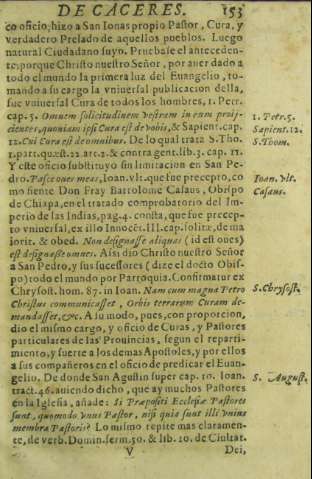 DE CACERES. 153
co oficio; hizo a San Ionas propio Pastor, Cura, y
verdadero Prelado de aquellos pueblos. Luego
natural Ciudadano suyo. Pruebase el anteceden-
te; porque Christo nuestro Señor, por auer dado a
todo el mundo la primera luz del Euangelio, to-
mando a su cargo la vniuersal publicacion della,
fue vniuersal Cura de todos los hombres, 1. Petr.
cap. 5. Omnem solicitudinem vestram in eum proij-
cientes, quoniam ipsi Cura est de vobis, & Sapient. cap.
12. Cui Cura est de omnibus. De lo qual trata S. Tho.
1. part. quæst. 22. art. 2. & contra gent. lib. 3. cap. 11.
Y este oficio substituyo sin limitacion en San Pe-
dro. Pasce oues meas, Ioan. vlt. que fue precepto, co
mo siente Don Fray Bartolome Casaus, Obispo
de Chiapa, en el tratado comprobatorio del Im-
perio de las Indias, pag. 4. consta, que fue precep-
to vniuersal, ex illo Innocēt. III. cap. solitæ, de ma
iorit. & obed. Non designasse aliquas (id est oues)
est designasse omnes. Assi dio Christo nuestro Señor
a San Pedro, y sus sucessores (dize el docto Obis-
po) todo el mundo por Parroquia. Confirmatur ex
Chrysost. hom. 87. in Ioan. Nam cum magna Petro
Christus communicasset, Orbis terrarum Curam de-
mandasset, &c. A su modo, pues, con proporcion,
dio el mismo cargo, y oficio de Curas, y Pastores
particulares de las Prouincias, segun el reparti-
miento, y suerte a los demas Apostoles, y por ellos
a sus compañeros en el oficio de predicar el Euan-
gelio. De donde San Agustin super cap. 10. Ioan.
tract. 46. auiendo dicho, que ay muchos Pastores
en la Iglesia, añade: Si Præpositi Ecclesiæ Pastores
sunt, quomodo vnus Pastor, nisi quia sunt illi vnius
membra Pastoris? Lo mismo repite mas claramen-
te, de verb. Domin. serm. 50. & lib. 10. de Ciuitat.
V Dei,
1. Petr. 5.
Sapient. 12.
S. Thom.
Ioan. vlt.
Casaus.
S. Chrysost.
S. August.